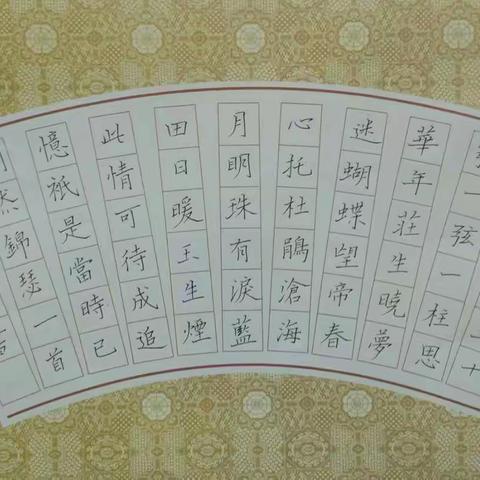 十
一弦一柱思
華年莊生曉夢
迷蝴蝶望帝春
心托杜鵑滄海
月明珠有淚藍
田日暖玉生煙
此情可待成追
憶衹是當時已
然錦瑟一首